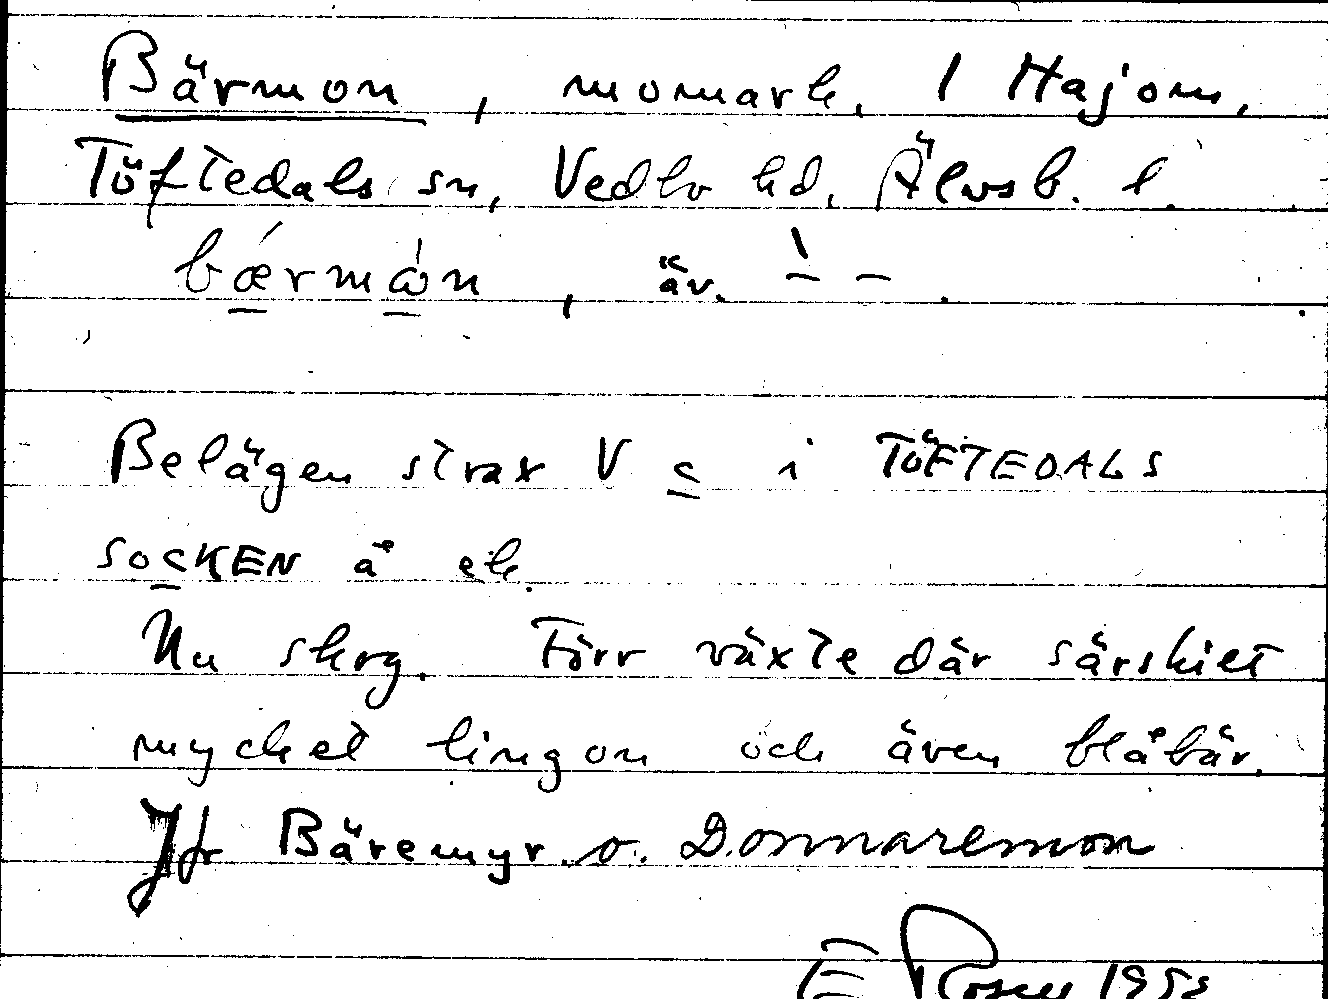 Bärmon, momark, 1 Hajom,
Töftedals sn, Vedbo hd, Älvsb. l.
bǽrmȯ̀n, äv. –̀ –.
Belägen strax V c i TÖFTEDALS
SOCKEN å ek.
Nu skog. Förr växte där särskilt
mycket lingon och även blåbär.
Jfr Bäremyr o. Donnaremon
E Rosell